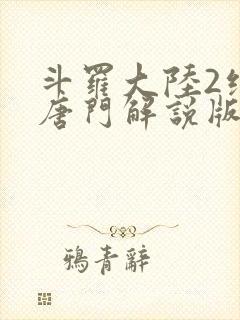 斗羅大陸2絕
唐門解説版
鴉青辭